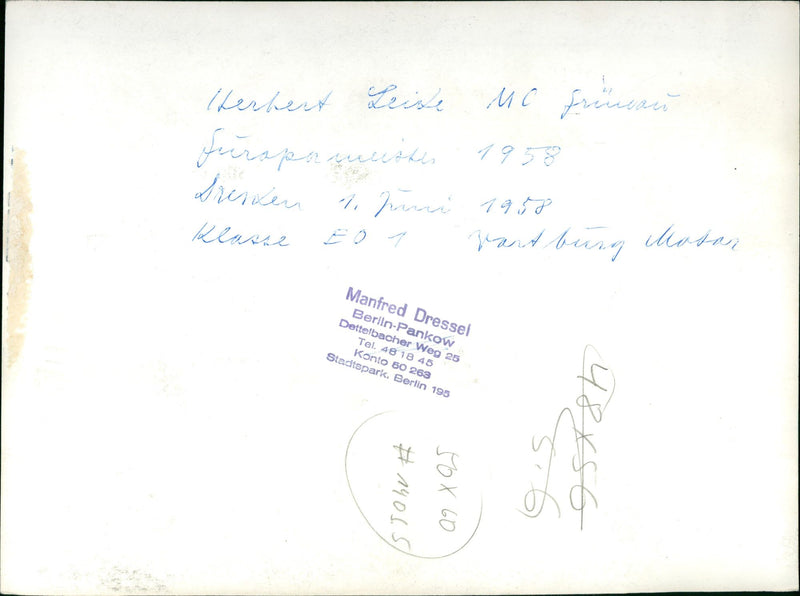 Herbert Leide MC Grünau
Europameister 1958
Dresden 1. Juni 1958
Klasse EO 1 Wartburg Motor
Manfred Dressel
Berlin-Pankow
Dettelbacher Weg 25
Tel. 48 18 45
Konto 50 263
Stadtspark. Berlin 195
48 X 56
9.5
56 X 60
#14055